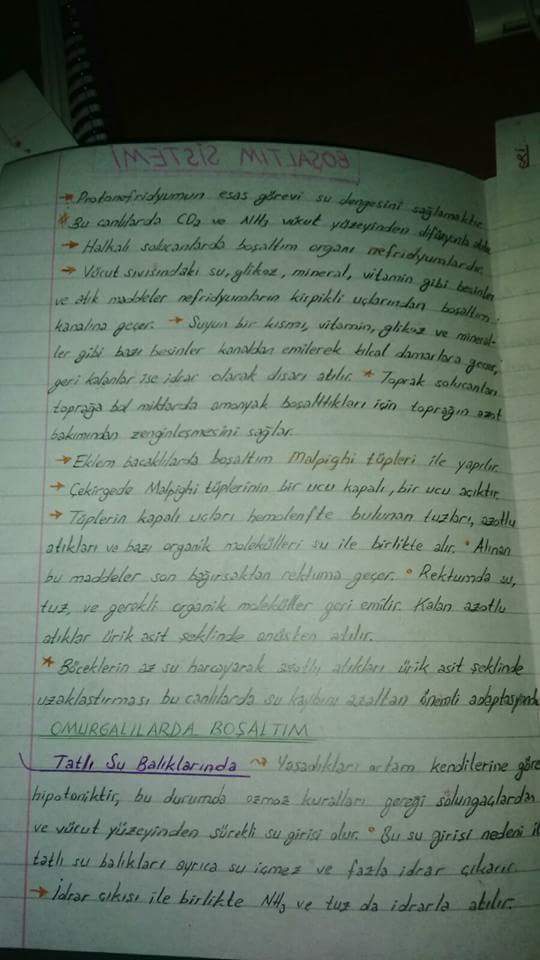 BOŞALTIM SİSTEMİ
→ Protonefridyumun esas görevi su dengesini sağlamaktır.
* Bu canlılarda CO2 ve NH3 vücut yüzeyinden difüzyonla atılır.
→ Halkalı solucanlarda boşaltım organı nefridyumlardır.
→ Vücut sıvısındaki su, glikoz, mineral, vitamin gibi besinler
ve atık maddeler nefridyumların kirpikli uçlarından boşaltım
kanalına geçer. → Suyun bir kısmı, vitamin, glikoz ve mineral-
ler gibi bazı besinler kanaldan emilerek kılcal damarlara geçer,
geri kalanlar ise idrar olarak dışarı atılır. * Toprak solucanları
toprağa bol miktarda amonyak boşalttıkları için toprağın azot
bakımından zenginleşmesini sağlar.
→ Eklem bacaklılarda boşaltım Malpighi tüpleri ile yapılır.
→ Çekirgede Malpighi tüplerinin bir ucu kapalı, bir ucu açıktır.
→ Tüplerin kapalı uçları hemolenfte bulunan tuzları, azotlu
atıkları ve bazı organik molekülleri su ile birlikte alır. • Alınan
bu maddeler son bağırsaktan rektuma geçer. • Rektumda su,
tuz, ve gerekli organik moleküller geri emilir. Kalan azotlu
atıklar ürik asit şeklinde anüsten atılır.
* Böceklerin az su harcayarak azotlu atıkları ürik asit şeklinde
uzaklaştırması bu canlılarda su kaybını azaltan önemli adaptasyondu
OMURGALILARDA BOŞALTIM
Tatlı Su Balıklarında ~> Yaşadıkları ortam kendilerine göre
hipotoniktir, bu durumda ozmoz kuralları gereği solungaçlardan
ve vücut yüzeyinden sürekli su girişi olur. • Bu su girişi nedeni il
tatlı su balıkları ayrıca su içmez ve fazla idrar çıkarır.
→ İdrar çıkışı ile birlikte NH3 ve tuz da idrarla atılır.